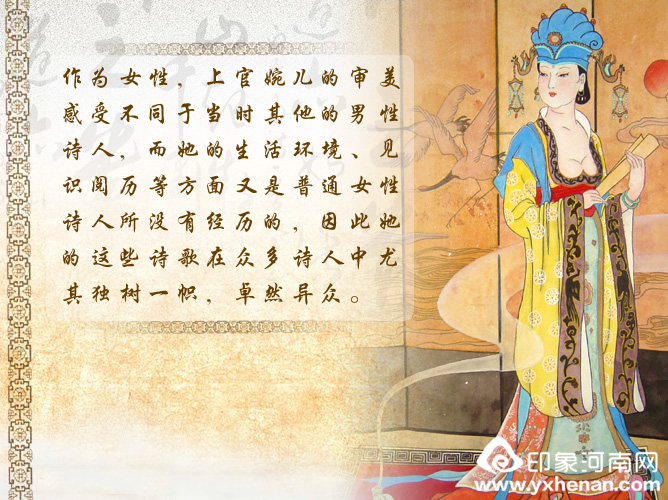 作为女性，上官婉儿的审美
感受不同于当时其他的男性
诗人，而她的生活环境、见
识阅历等方面又是普通女性
诗人所没有经历的，因此她
的这些诗歌在众多诗人中尤
其独树一帜，卓然异众。
印象河南网
www.yxhenan.com